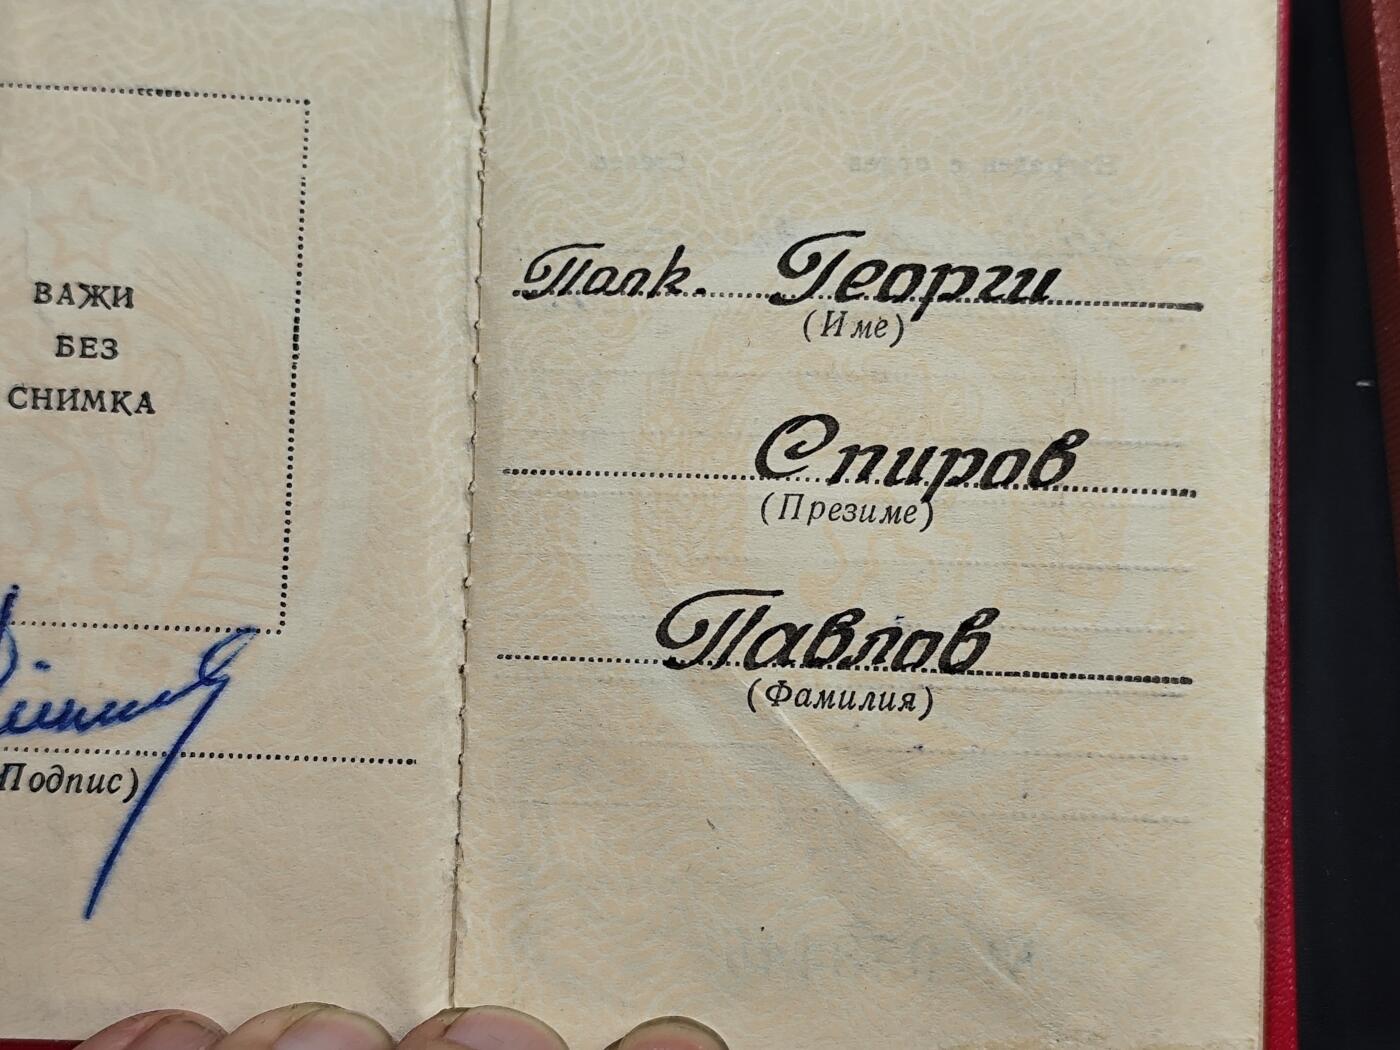 ВАЖИ
БЕЗ
СНИМКА
Подпис)
Полк. Георги
(Име)
Спиров
(Презиме)
Павлов
(Фамилия)